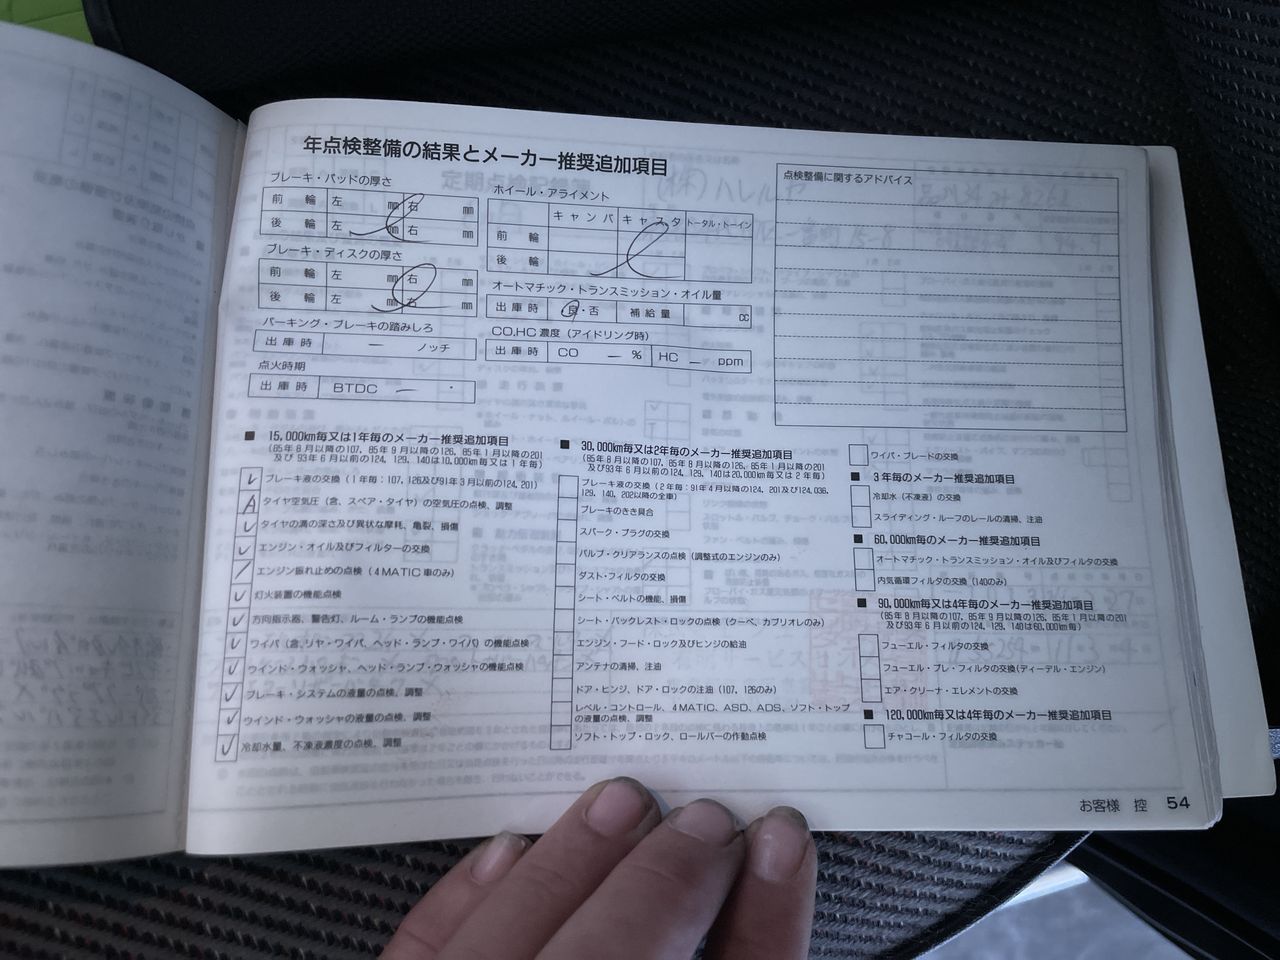 年点検整備の結果とメーカー推奨追加項目
ブレーキ・パッドの厚さ
前輪 左 mm 右 mm
後輪 左 mm 右 mm
ブレーキ・ディスクの厚さ
前輪 左 mm 右 mm
後輪 左 mm 右 mm
パーキング・ブレーキの踏みしろ
出庫時 — ノッチ
点火時期
出庫時 BTDC — °
ホイール・アライメント
キャンバ キャスタ トータル・トーイン
前輪
後輪
オートマチック・トランスミッション・オイル量
出庫時 良・否 補給量 cc
CO,HC濃度(アイドリング時)
出庫時 CO — % HC — ppm
点検整備に関するアドバイス
■ 15,000km毎又は1年毎のメーカー推奨追加項目
(85年8月以降の107, 85年9月以降の126, 85年1月以降の201
及び93年6月以前の124, 129, 140は10,000km毎又は1年毎)
✓ ブレーキ液の交換(1年毎:107, 126及び91年3月以前の124, 201)
A タイヤ空気圧(含、スペア・タイヤ)の空気圧の点検、調整
✓ タイヤの溝の深さ及び異状な摩耗、亀裂、損傷
✓ エンジン・オイル及びフィルターの交換
/ エンジン振れ止めの点検(4MATIC車のみ)
✓ 灯火装置の機能点検
✓ 方向指示器、警告灯、ルーム・ランプの機能点検
✓ ワイパ(含、リヤ・ワイパ、ヘッド・ランプ・ワイパ)の機能点検
✓ ウインド・ウォッシャ、ヘッド・ランプ・ウォッシャの機能点検
✓ ブレーキ・システムの液量の点検、調整
✓ ウインド・ウォッシャの液量の点検、調整
✓ 冷却水量、不凍液濃度の点検、調整
■ 30,000km毎又は2年毎のメーカー推奨追加項目
(85年8月以降の107, 85年9月以降の126, 85年1月以降の201
及び93年6月以前の124, 129, 140は20,000km毎又は2年毎)
ブレーキ液の交換(2年毎:91年4月以降の124, 201及び124.036,
129, 140, 202以降の全車)
ブレーキのきき具合
スパーク・プラグの交換
バルブ・クリアランスの点検(調整式のエンジンのみ)
ダスト・フィルタの交換
シート・ベルトの機能、損傷
シート・バックレスト・ロックの点検(クーペ、カブリオレのみ)
エンジン・フード・ロック及びヒンジの給油
アンテナの清掃、注油
ドア・ヒンジ、ドア・ロックの注油(107, 126のみ)
レベル・コントロール、4MATIC, ASD, ADS, ソフト・トップ
の液量の点検、調整
ソフト・トップ・ロック、ロールバーの作動点検
ワイパ・ブレードの交換
■ 3年毎のメーカー推奨追加項目
冷却水(不凍液)の交換
スライディング・ルーフのレールの清掃、注油
■ 60,000km毎のメーカー推奨追加項目
オートマチック・トランスミッション・オイル及びフィルタの交換
内気循環フィルタの交換(140のみ)
■ 90,000km毎又は4年毎のメーカー推奨追加項目
(85年8月以降の107, 85年9月以降の126, 85年1月以降の201
及び93年6月以前の124, 129, 140は60,000km毎)
フューエル・フィルタの交換
フューエル・プレ・フィルタの交換(ディーゼル・エンジン)
エア・クリーナ・エレメントの交換
■ 120,000km毎又は4年毎のメーカー推奨追加項目
チャコール・フィルタの交換
お客様 控 54